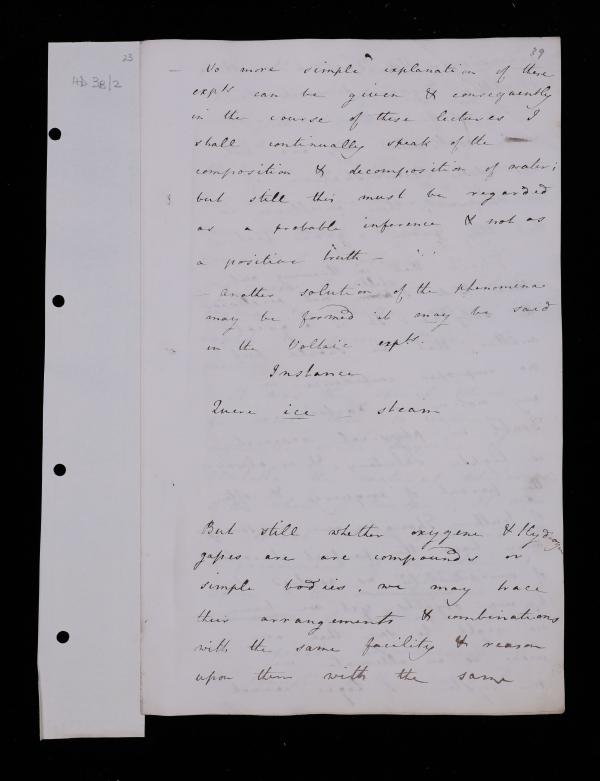 23
HD 3B/2
39
— No more simple explanation of these
expts can be given & consequently
in the course of these lectures I
shall continually speak of the —
composition & decomposition of water;
but still this must be regarded
as a probable inference & not as
a positive truth —
— another solution of the phenomena
may be formed it may be said
in the Voltaic expts.
Instance
Quere ice steam
But still whether oxygene & Hydrogene
gases are are compounds or
simple bodies, we may trace
their arrangements & combinations
with the same facility & reason
upon them with the same